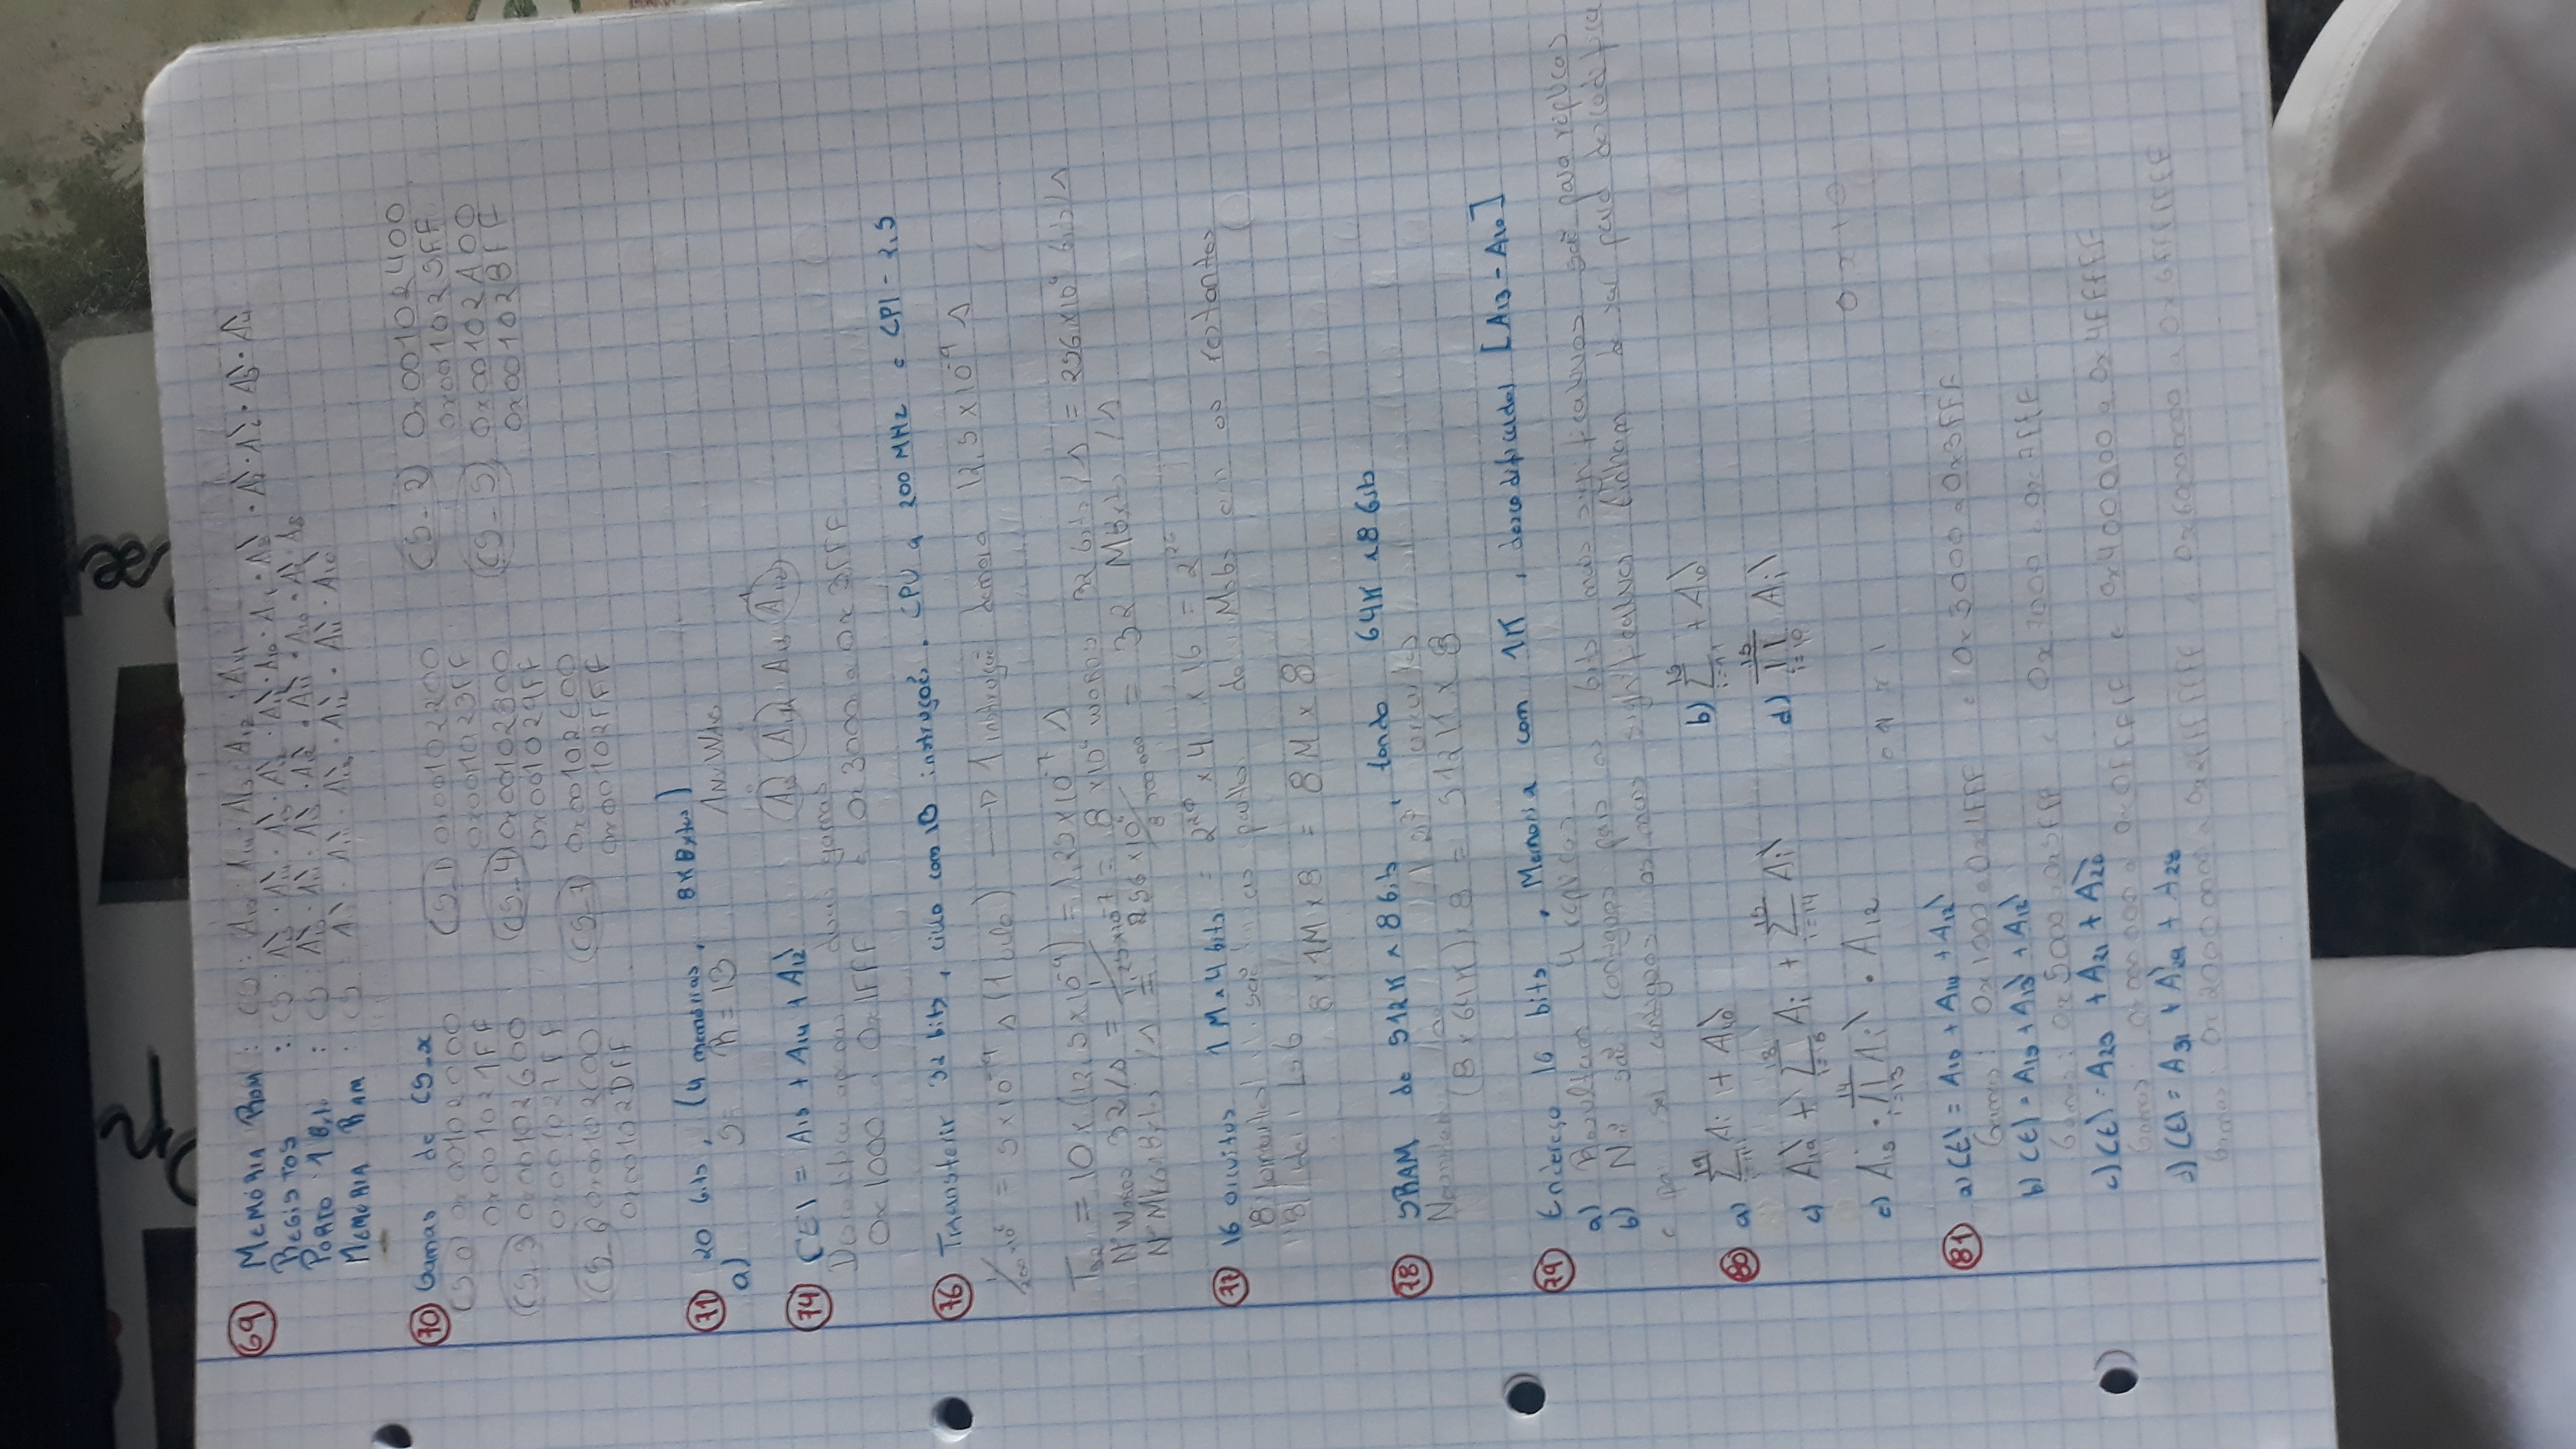 69 MEMÓRIA ROM : CS : A15 · A14 · A13 · A12 · A11
REGISTOS : CS : A15\ · A14\ · A13\ · A12\ · A11\ · A10 ·
PORTO 1 Bit : CS : A15\ · A14\ · A13\ · A12\ · A11\ · A10 · A9\ · A8
MEMÓRIA RAM : CS : A15\ · A14\ · A13\ · A12\ · A11\ · A10\
70 Gamas de CS_x
CS_0) 0x00102000
0x001021FF
CS_1) 0x00102200
0x001023FF
CS_2) 0x00102400
0x001025FF
CS_3) 0x00102600
0x001027FF
CS_4) 0x00102800
0x001029FF
CS_5) 0x00102A00
0x00102BFF
CS_6) 0x00102C00
0x00102DFF
CS_7) 0x00102C00
0x00102FFF
71 20 bits, (4 memórias, 8KBytes)
a) R = 13
74 CE\ = A15 + A14 + A12\
A15 A14 A13 A12
Descodifica apenas duas gamas
0x1000 a 0x1FFF e 0x3000 a 0x3FFF
76 Transferir 32 bits, ciclo com 10 instruções. CPU a 200 MHz e CPI = 2.5
1/200×10⁶ = 5×10⁻⁹ s (1 ciclo) → 1 instrução demora 12,5×10⁻⁹ s
= 10 × (12,5×10⁻⁹) = 1,25×10⁻⁷ s
Nº Words 32/s = 1/1,25×10⁻⁷ = 8×10⁶ words 32 bits/s = 256×10⁶ bits/s
Nº MegaBytes/s = 256×10⁶ = 32 MBytes/s
77 16 circuitos 1M×4 bits = 2²⁰ × 4 × 16 = 2²⁶
8 circuitos são as partes do Msbs com os restantes
8 do Lsb
8×1M×8 = 8M×8
78 SRAM de 512K × 8 bits, tendo 64K × 8 bits
circuitos
(8×64K)×8 = 512K×8
79 Endereço 16 bits, Memoria com 1K, descodificados [A13 - A10]
a) Resultam 4 réplicas
b) Não são contíguas pois os bits mais significativos são para réplicas
e para ser contíguas os mais significativos tinham de ser para descodificar
80 a) Σ Ai + A10\
b) Σ + A10\
c) A19\ + Σ Ai + Σ Ai\
d) Π Ai\
e) A15 · Π Ai\ · A12
81 a) CE\ = A15 + A14 + A12\
Gamas: 0x1000 a 0x1FFF e 0x3000 a 0x3FFF
b) CE\ = A15 + A13\ + A12\
Gamas: 0x5000 0x5FFF e 0x7000 a 0x7FFF
c) CE\ = A23 + A21 + A20\
Gamas: e 0x400000 a 0x4FFFFF
d) CE\ = A31 + A29\ + A28
Gamas: 0x20000000 a 0x2FFFFFFF e 0x60000000 a 0x6FFFFFFF